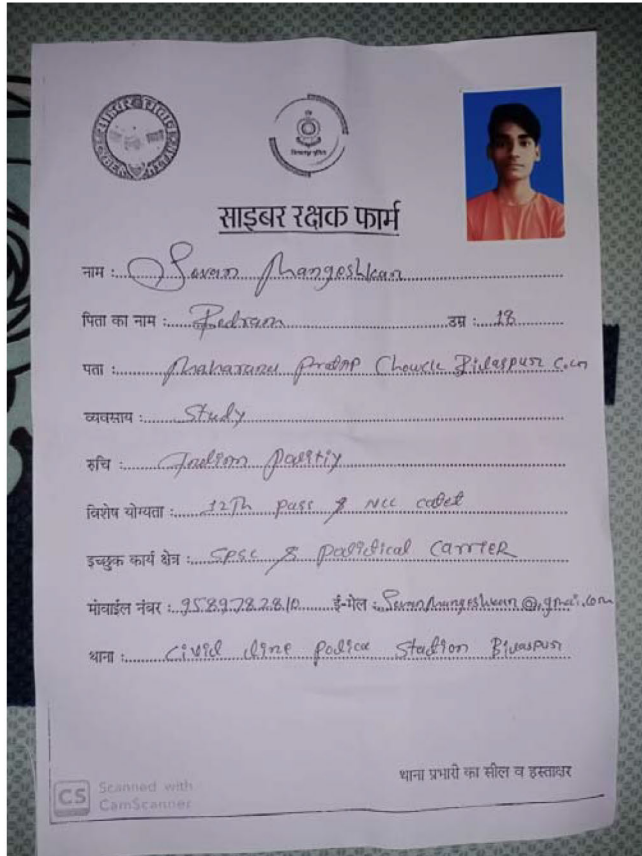 साइबर रक्षक फार्म
नाम : Savan Mangeshkar
पिता का नाम : Pedram उम्र : 18
पता : Maharana Pratap Chowck Bilaspur C.G
व्यवसाय : Study
रुचि :
विशेष योग्यता : 12Th pass & NCC cadet
इच्छुक कार्य क्षेत्र : CARRIER
मोवाईल नंबर : 9589782810 ई-मेल :
थाना : Civil line police Station Bilaspur
थाना प्रभारी का सील व हस्ताक्षर
CS Scanned with
CamScanner